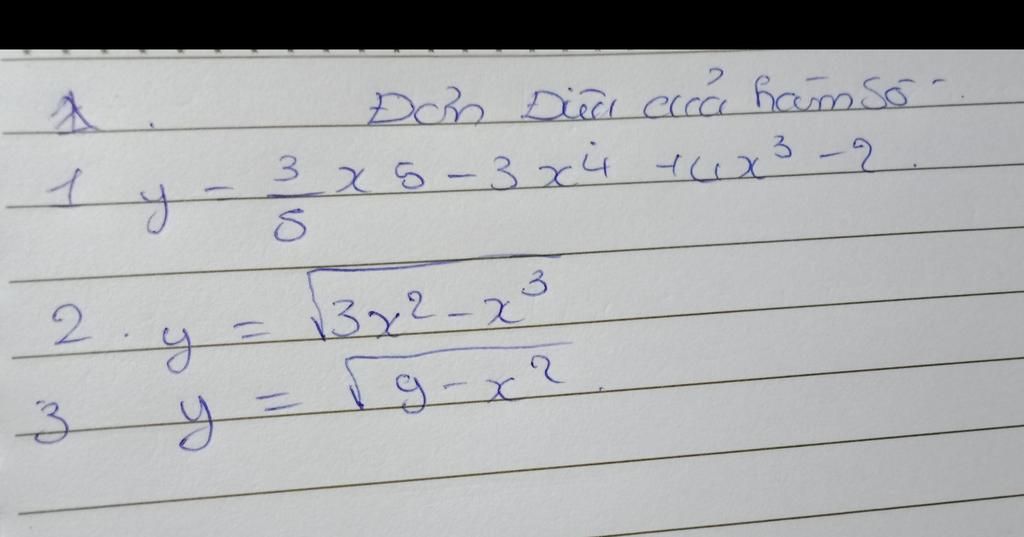 1. Đơn Điệu của hàm số.
1 y = 3/5 x5 - 3x⁴ + 4x³ - 2.
2. y = √(3x² - x³)
3 y = √(9 - x²).